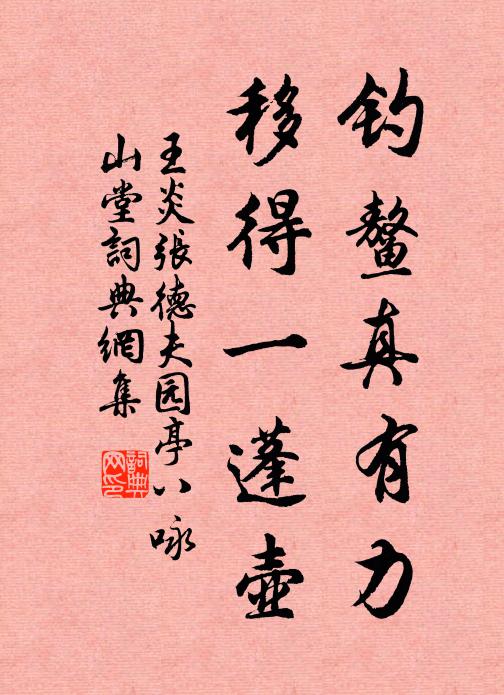 钓鳌真有力
移得一蓬壶
王炎張德夫园亭八咏
山堂詞典網集
詞典网印